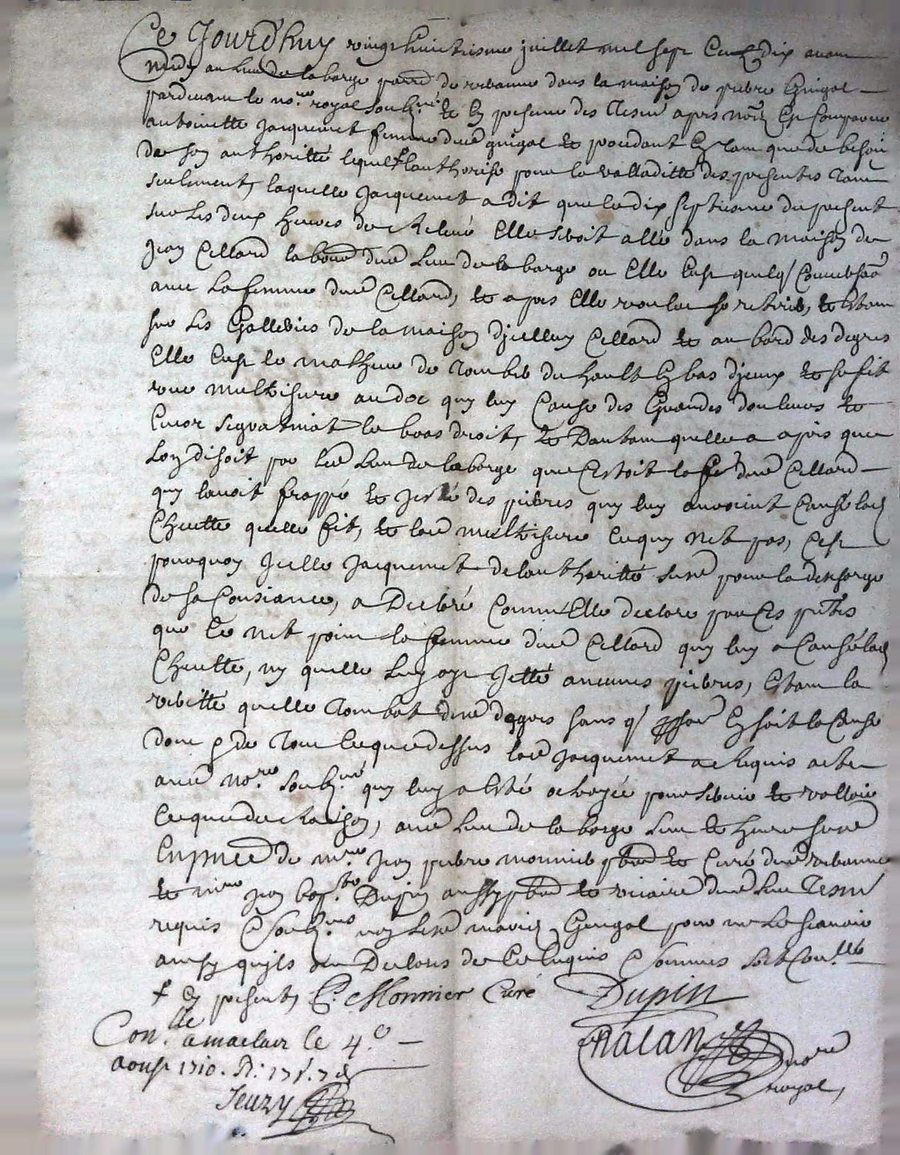 Ce Jourd'huy vingt huictiesme juillet mil sept Cent dix avant
midy au lieu de la barge parre de rebanne dans la maison de pierre Guigal
pardevant le no.re royal soubz.né et En presence des tesm. apres nom.z Est Comparue
antoinette Jacquemet femme dud guigal et procedant En tant que de besoin
de son authoritte lequel + lauthorise pour la valladitte des presentes tant
seulement, laquelle Jacquemet a dit que le dix septiesme du present
sur les deux heures de Relevé Elle seroit alle dans la maison de
Jean Cellard labour dud lieu de la barge ou Elle Eust quelq Conversaon
avec la femme dud Cellard, et apres Elle voulut se retirer, et Estant
sur les Galleries de la maison dicelluy Cellard et au bord des degres
Elle Eust le malheur de tomber du hault En bas diceux et se fit
une multisure au doc quy luy Cause des Grandes douleurs et
Encor au bras droit, et Dautant quelle a apris que
Lon disoit par led lieu de la barge que Cestoit la fe dud Cellard
quy lavoit frappé et jetté des pierres quy luy avoient Causé lad
Cheutte quelle fit, et lad multisure Ce quy n'et pas, Cest
pourquoy Icelle Jacquemet de lauthoritté susd pour la descharge
de sa Consiance, a Declaré Comme Elle declare par Ces pntes
que Ce n'et point la femme dud Cellard quy luy a Causé lad
Cheutte, ny quelle luy aye jetté aucunes pierres, Estant la
veritte quelle tombat desd degres sans q En soit la Cause
donc & de tout Ce que dessus lad Jacquemet a Requis acte
aud no.re soubz.né quy luy a Esté octroyée pour servir et valloir
Ce que de Raison, aud lieu de la barge lieu et heure susd
En pnce de m.re Jean pierre monnier pbre et Curé dud rebanne
et m.re Jean bap.te Dupin aussy pbre et vicaire dud lieu tesm
requis & soubz.nes non lesd mariez Guigal pour ne le scavoir
ainsy quyls ont Declare de Ce Enquis & sommes soit Con.llé
+ Cy present, C. Monnier Curé Dupin
Chalan no.re
royal
Con.llé a malleval le 4.e
aoust 1710.
Jeuzy